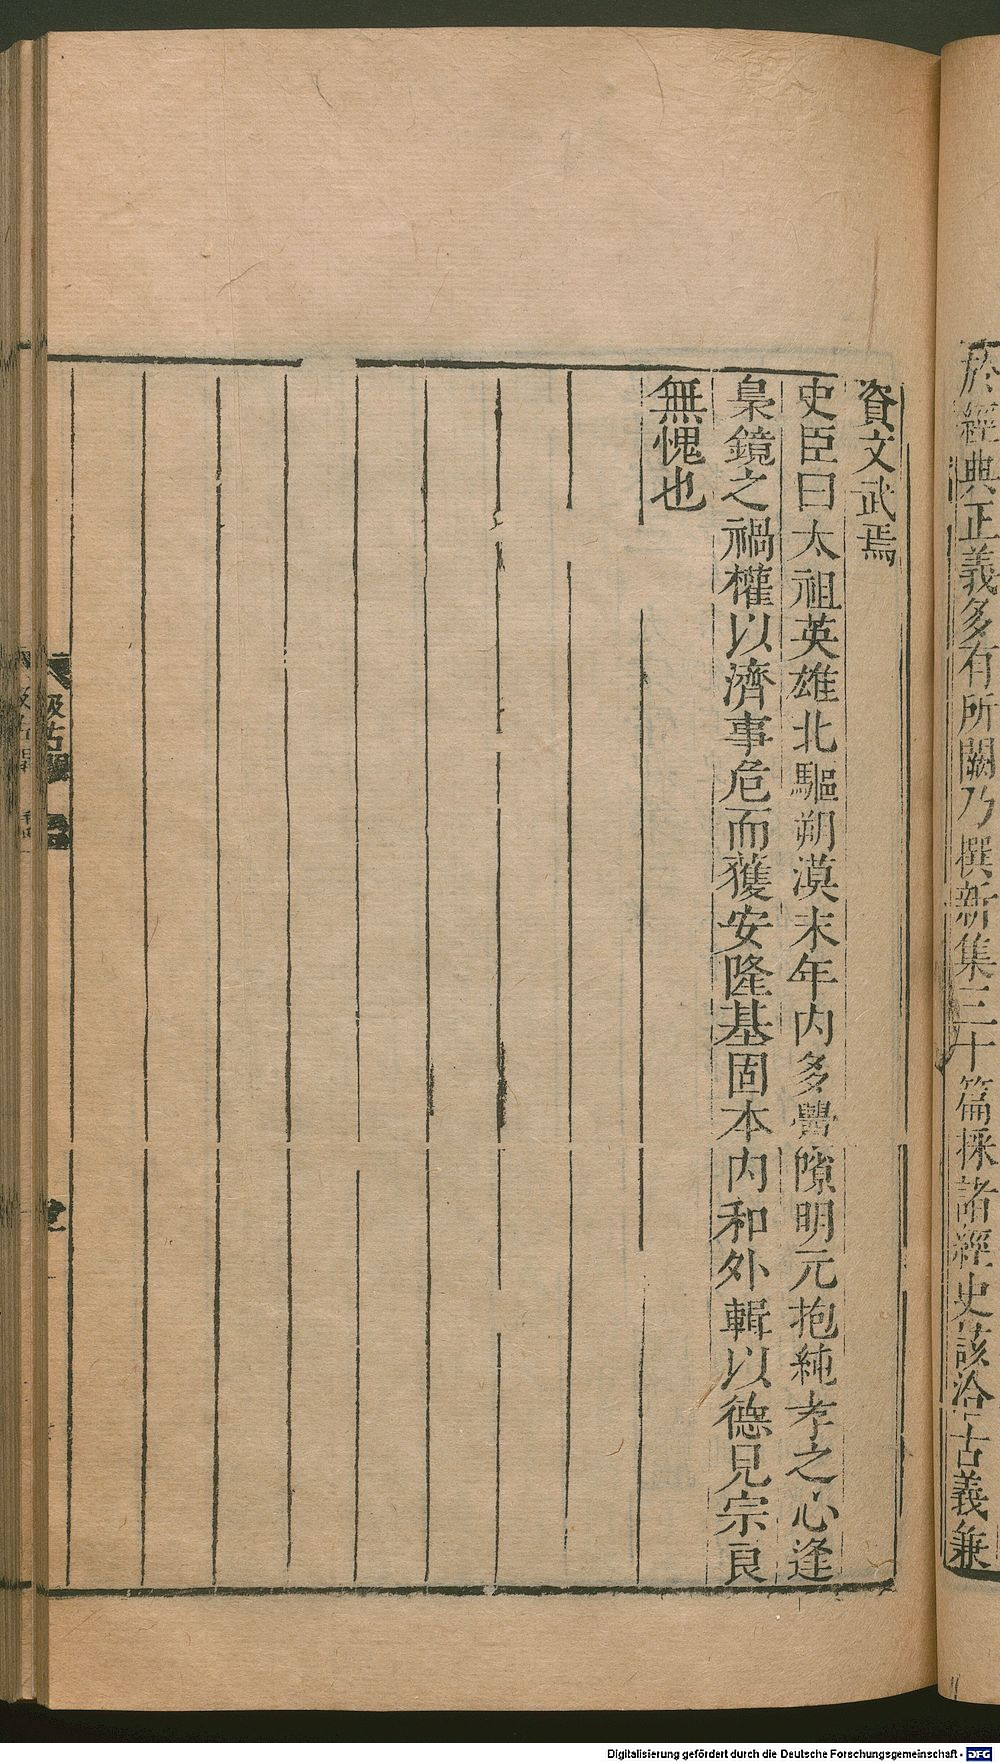 於經典正義多有所闕乃撰新集三十篇採諸經史該洽古義兼
資文武焉
史臣曰太祖英雄北驅朔漠末年內多釁隙明元抱純孝之心逢
梟鏡之禍權以濟事危而獲安隆基固本內和外輯以德見宗良
無愧也
汲古閣
Digitalisierung gefördert durch die Deutsche Forschungsgemeinschaft - DFG